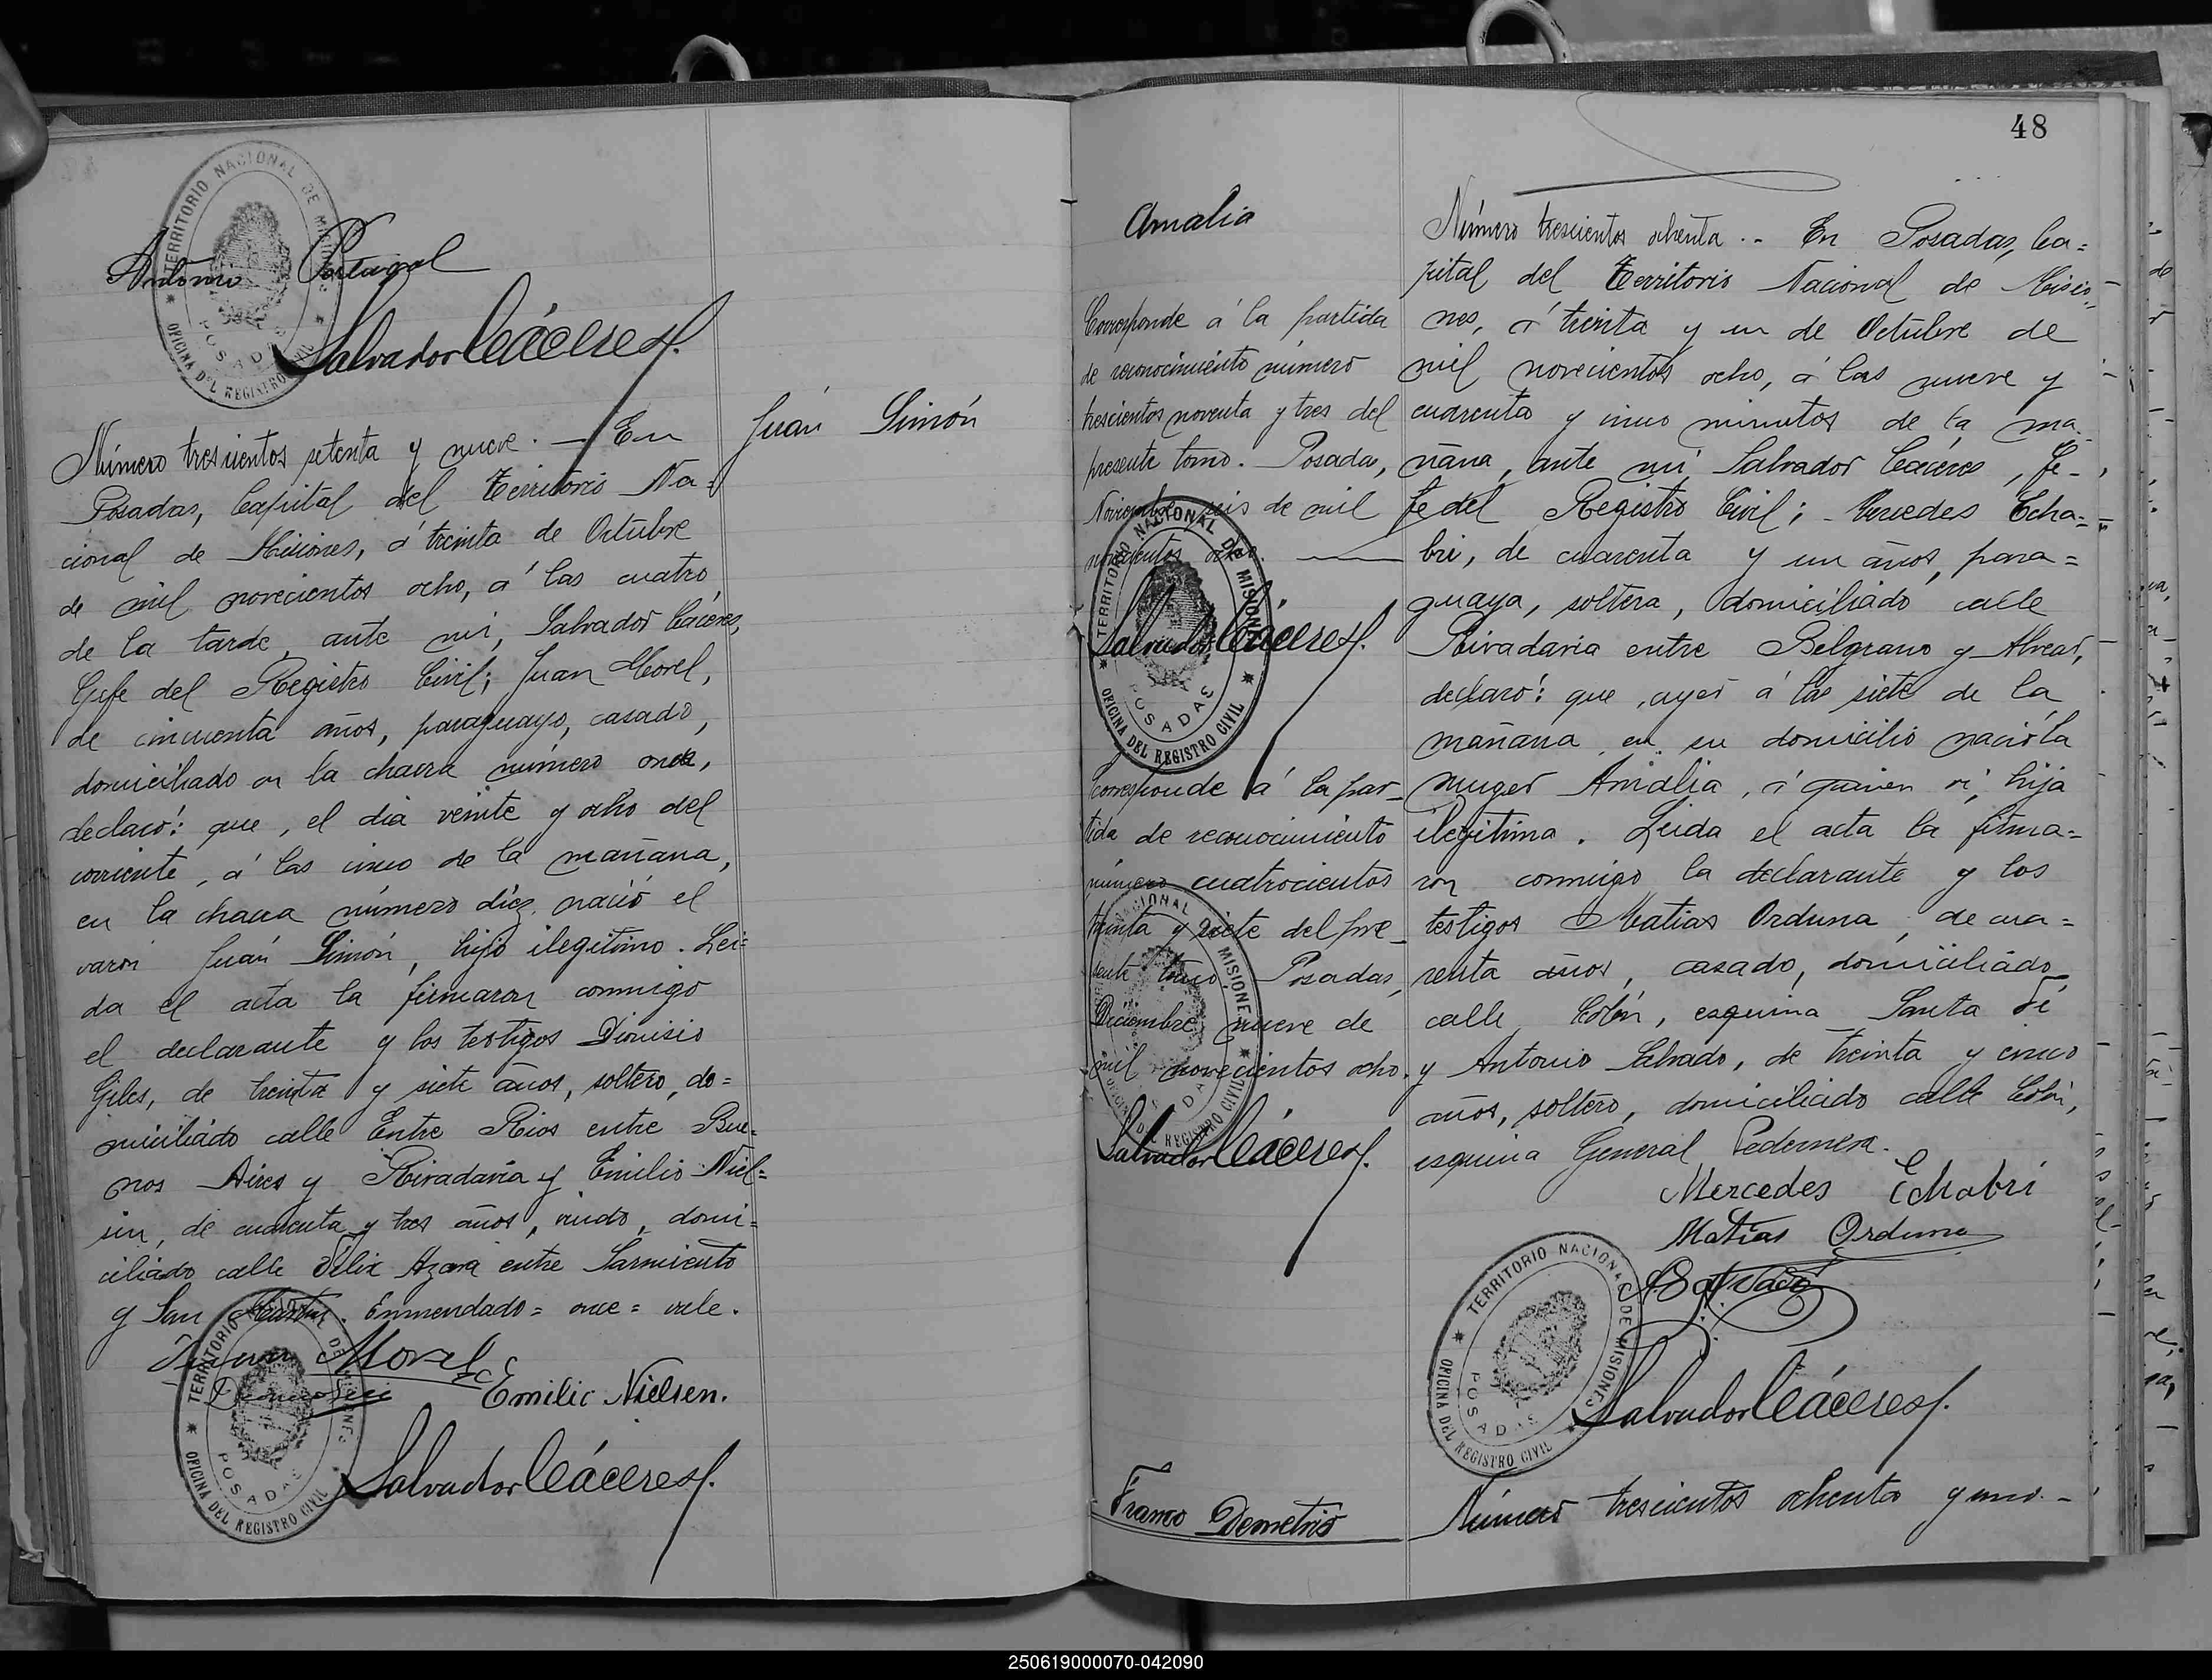 Antonio Portugal
Salvador Cáceres f.
TERRITORIO NACIONAL DE MISIONES
POSADAS
OFICINA DEL REGISTRO CIVIL
Número trescientos setenta y nueve. — En
Posadas, Capital del Territorio Na=
cional de Misiones, á treinta de Octubre
de mil novecientos ocho, á las cuatro
de la tarde, ante mi, Salvador Cáceres,
Gefe del Registro Civil; Juan Morel,
de cincuenta años, paraguayo, casado,
domiciliado en la chacra número once,
declaró: que, el dia veinte y ocho del
corriente, á las cinco de la mañana,
en la chacra número diez, nació el
varon Juán Simón, hijo ilegitimo. Lei=
da el acta la firmaron conmigo
el declarante y los testigos Dionisio
Giles, de treinta y siete años, soltero, do=
miciliado calle Entre Rios entre Bue=
nos Aires y Rivadavia y Emilio Niel=
sen, de cuarenta y tres años, viudo, domi=
ciliado calle Félix Azara entre Sarmiento
y San Martin. Enmendado = once = vale.
Juan Morel
Emilio Nielsen.
Salvador Cáceres f.
TERRITORIO NACIONAL DE MISIONES
POSADAS
OFICINA DEL REGISTRO CIVIL
Juán Simón
48
Amalia
Corresponde á la partida
de reconocimiento número
trescientos noventa y tres del
presente tomo. Posadas,
Noviembre seis de mil
novecientos ocho. —
TERRITORIO NACIONAL DE MISIONES
POSADAS
OFICINA DEL REGISTRO CIVIL
Salvador Cáceres f.
Corresponde á la par_
tida de reconocimiento
número cuatrocientos
treinta y siete del pre_
sente tomo. Posadas,
Diciembre nueve de
mil novecientos ocho.
NACIONAL DE MISIONES
POSADAS
OFICINA DEL REGISTRO CIVIL
Salvador Cáceres f.
Franco Demetrio
Número trescientos ochenta .- En Posadas, Ca=
pital del Territorio Nacional de Misio=
nes, á treinta y un de Octubre de
mil novecientos ocho, á las nueve y
cuarenta y cinco minutos de la ma=
ñana, ante mi Salvador Cáceres, Ge-
fe del Registro Civil; - Mercedes Echa=
bri, de cuarenta y un años, para=
guaya, soltera, domiciliado calle
Rivadavia entre Belgrano y Alvear,
declaró: que, ayer á las siete de la
mañana, en su domicilio nació la
muger Amalia, á quien vi, hija
ilegitima. Leida el acta la firma=
ron conmigo la declarante y los
testigos Matias Orduna, de cua=
renta años, casado, domiciliado
calle Colón, esquina Santa Fé
y Antonio Salvado, de treinta y cinco
años, soltero, domiciliado calle Colón,
esquina General Pedernera.
Mercedes Echabri
Matias Orduna
A Salvadó
TERRITORIO NACIONAL DE MISIONES
POSADAS
OFICINA DEL REGISTRO CIVIL
Salvador Cáceres f.
Número trescientos ochenta y uno. -
250619000070-042090